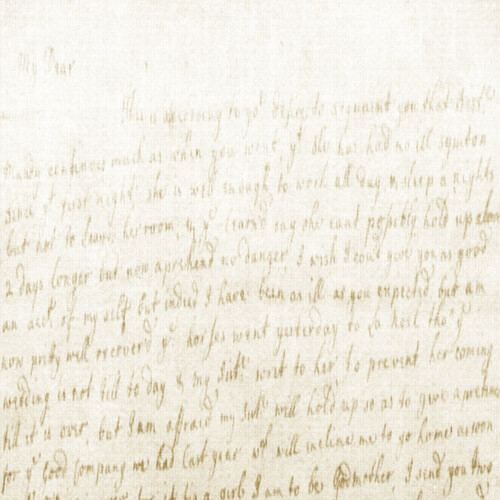 My Dear
This is according to yr desire to acquaint you that
continues much as when you went, yt she has had no ill
since yt first night, she is well enough to work all day & sleep a nights
but not to leave her room, & ye say she cant possibly hold up above
2 days longer but now aprehend no danger, I wish I coud give you as good
an acct. of my self but indeed I have been as ill as you expected but am
now pritty well recover'd ye horses went yesterday to tho' ye
wedding is not till to day & my Sistr. writ to her to prevent her coming
till it is over, but I am afraid my Sistr. will hold up so as to give
for ye Good Company we had last year wch will incline me to go home
it be a girl I am to be Godmother, I send you two